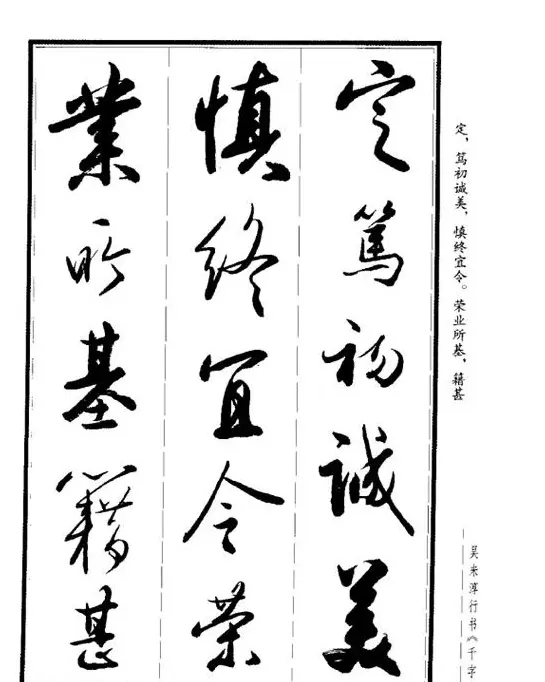 定篤初誠美
慎終宜令榮
業所基籍甚
定，笃初诚美，慎终宜令。荣业所基，籍甚
吴米淳行书《千字